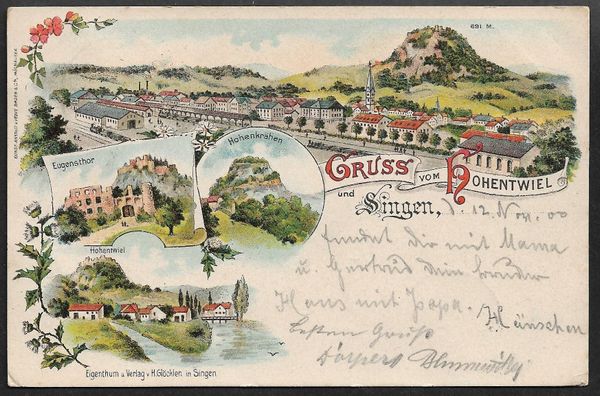 691 M.
Eugensthor
Hohenkrähen
GRUSS VOM HOHENTWIEL
und Singen,
d. 12. Nov. 00
sendet dir mit Mama
u. Gertrud dein Bruder
Hans mit Papa.
Hänschen
Besten Gruß
Hohentwiel
Eigenthum u. Verlag v. H. Glöcklen in Singen